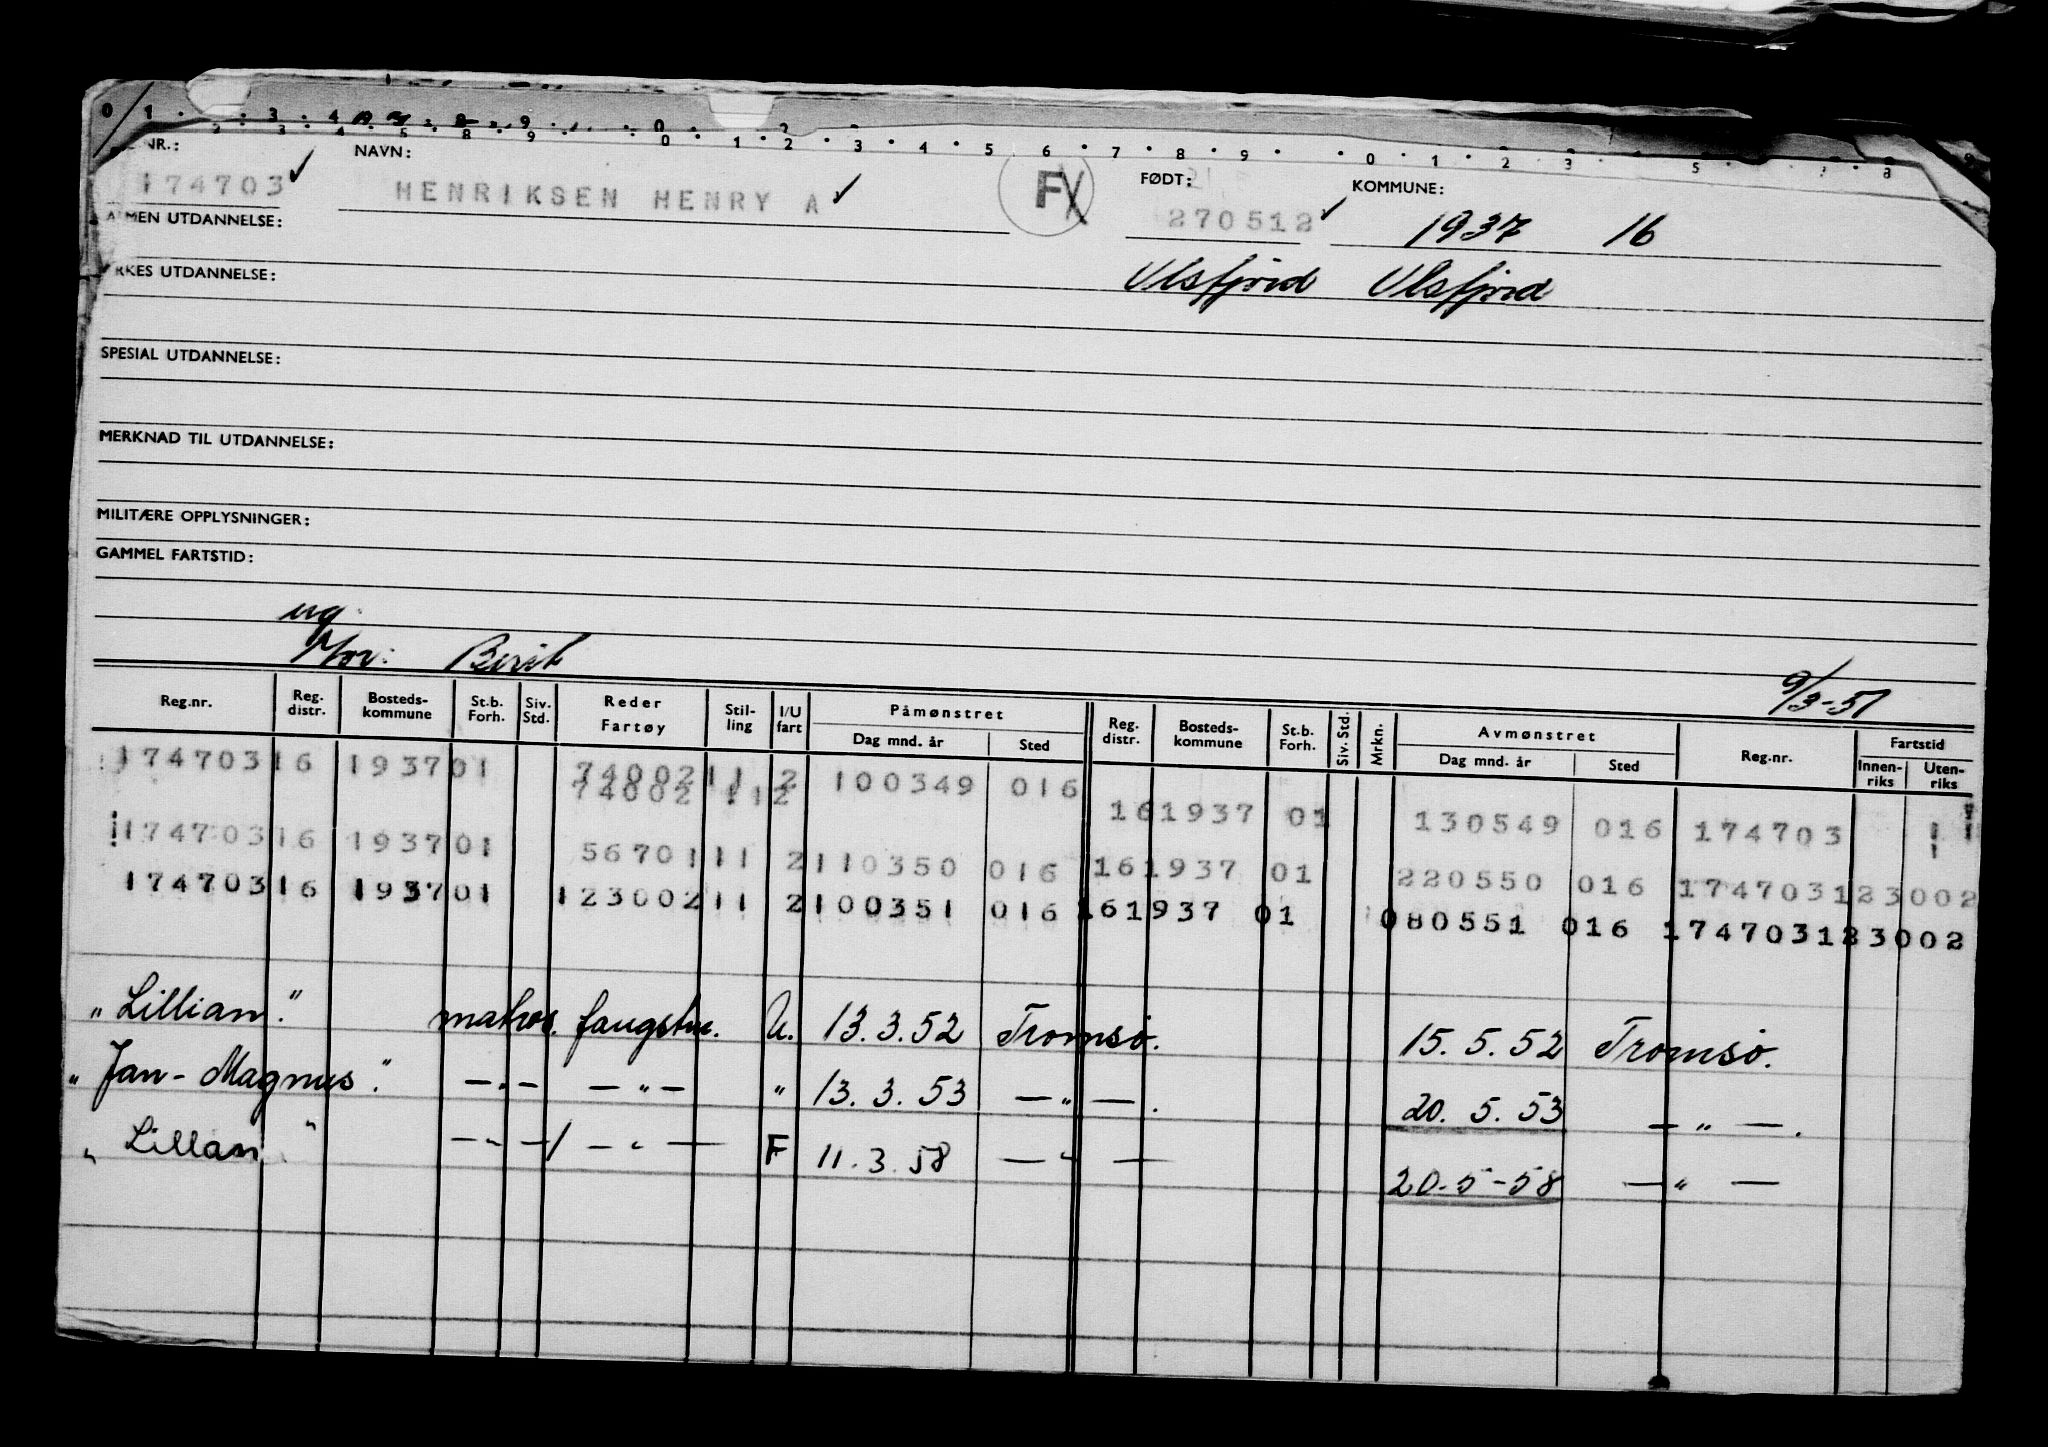 NR.: NAVN: FØDT: KOMMUNE:
174703 HENRIKSEN HENRY A F 270512 1937 16
MEN UTDANNELSE:
RKES UTDANNELSE: Ulsfjord Ulsfjord
SPESIAL UTDANNELSE:
MERKNAD TIL UTDANNELSE:
MILITÆRE OPPLYSNINGER:
GAMMEL FARTSTID:
ug.
Mor: Berit 9/3-51
Reg.nr. Reg. distr. Bosteds-kommune St.b. Forh. Siv. Std. Reder Fartøy Stil-ling I/U fart Påmønstret Dag mnd. år Sted Reg. distr. Bosteds-kommune St.b. Forh. Siv. Std. Mrkn. Avmønstret Dag mnd. år Sted Reg.nr. Fartstid Innen-riks Uten-riks
174703 16 1937 01 74002 11 2 100349 016 161937 01 130549 016 174703
74002 112
174703 16 1937 01 56701 11 2 110350 016 161937 01 220550 016 174703123002
174703 16 1937 01 123002 11 2 100351 016 161937 01 080551 016 174703123002
"Lillian." matros. fangstm. U. 13.3.52 Tromsø. 15.5.52 Tromsø.
"Jan-Magnus". —"— —"— " 13.3.53 —"—. 20.5.53 —"—.
"Lillan" —"— —"— F 11.3.58 —"— 20-5-58 —"—